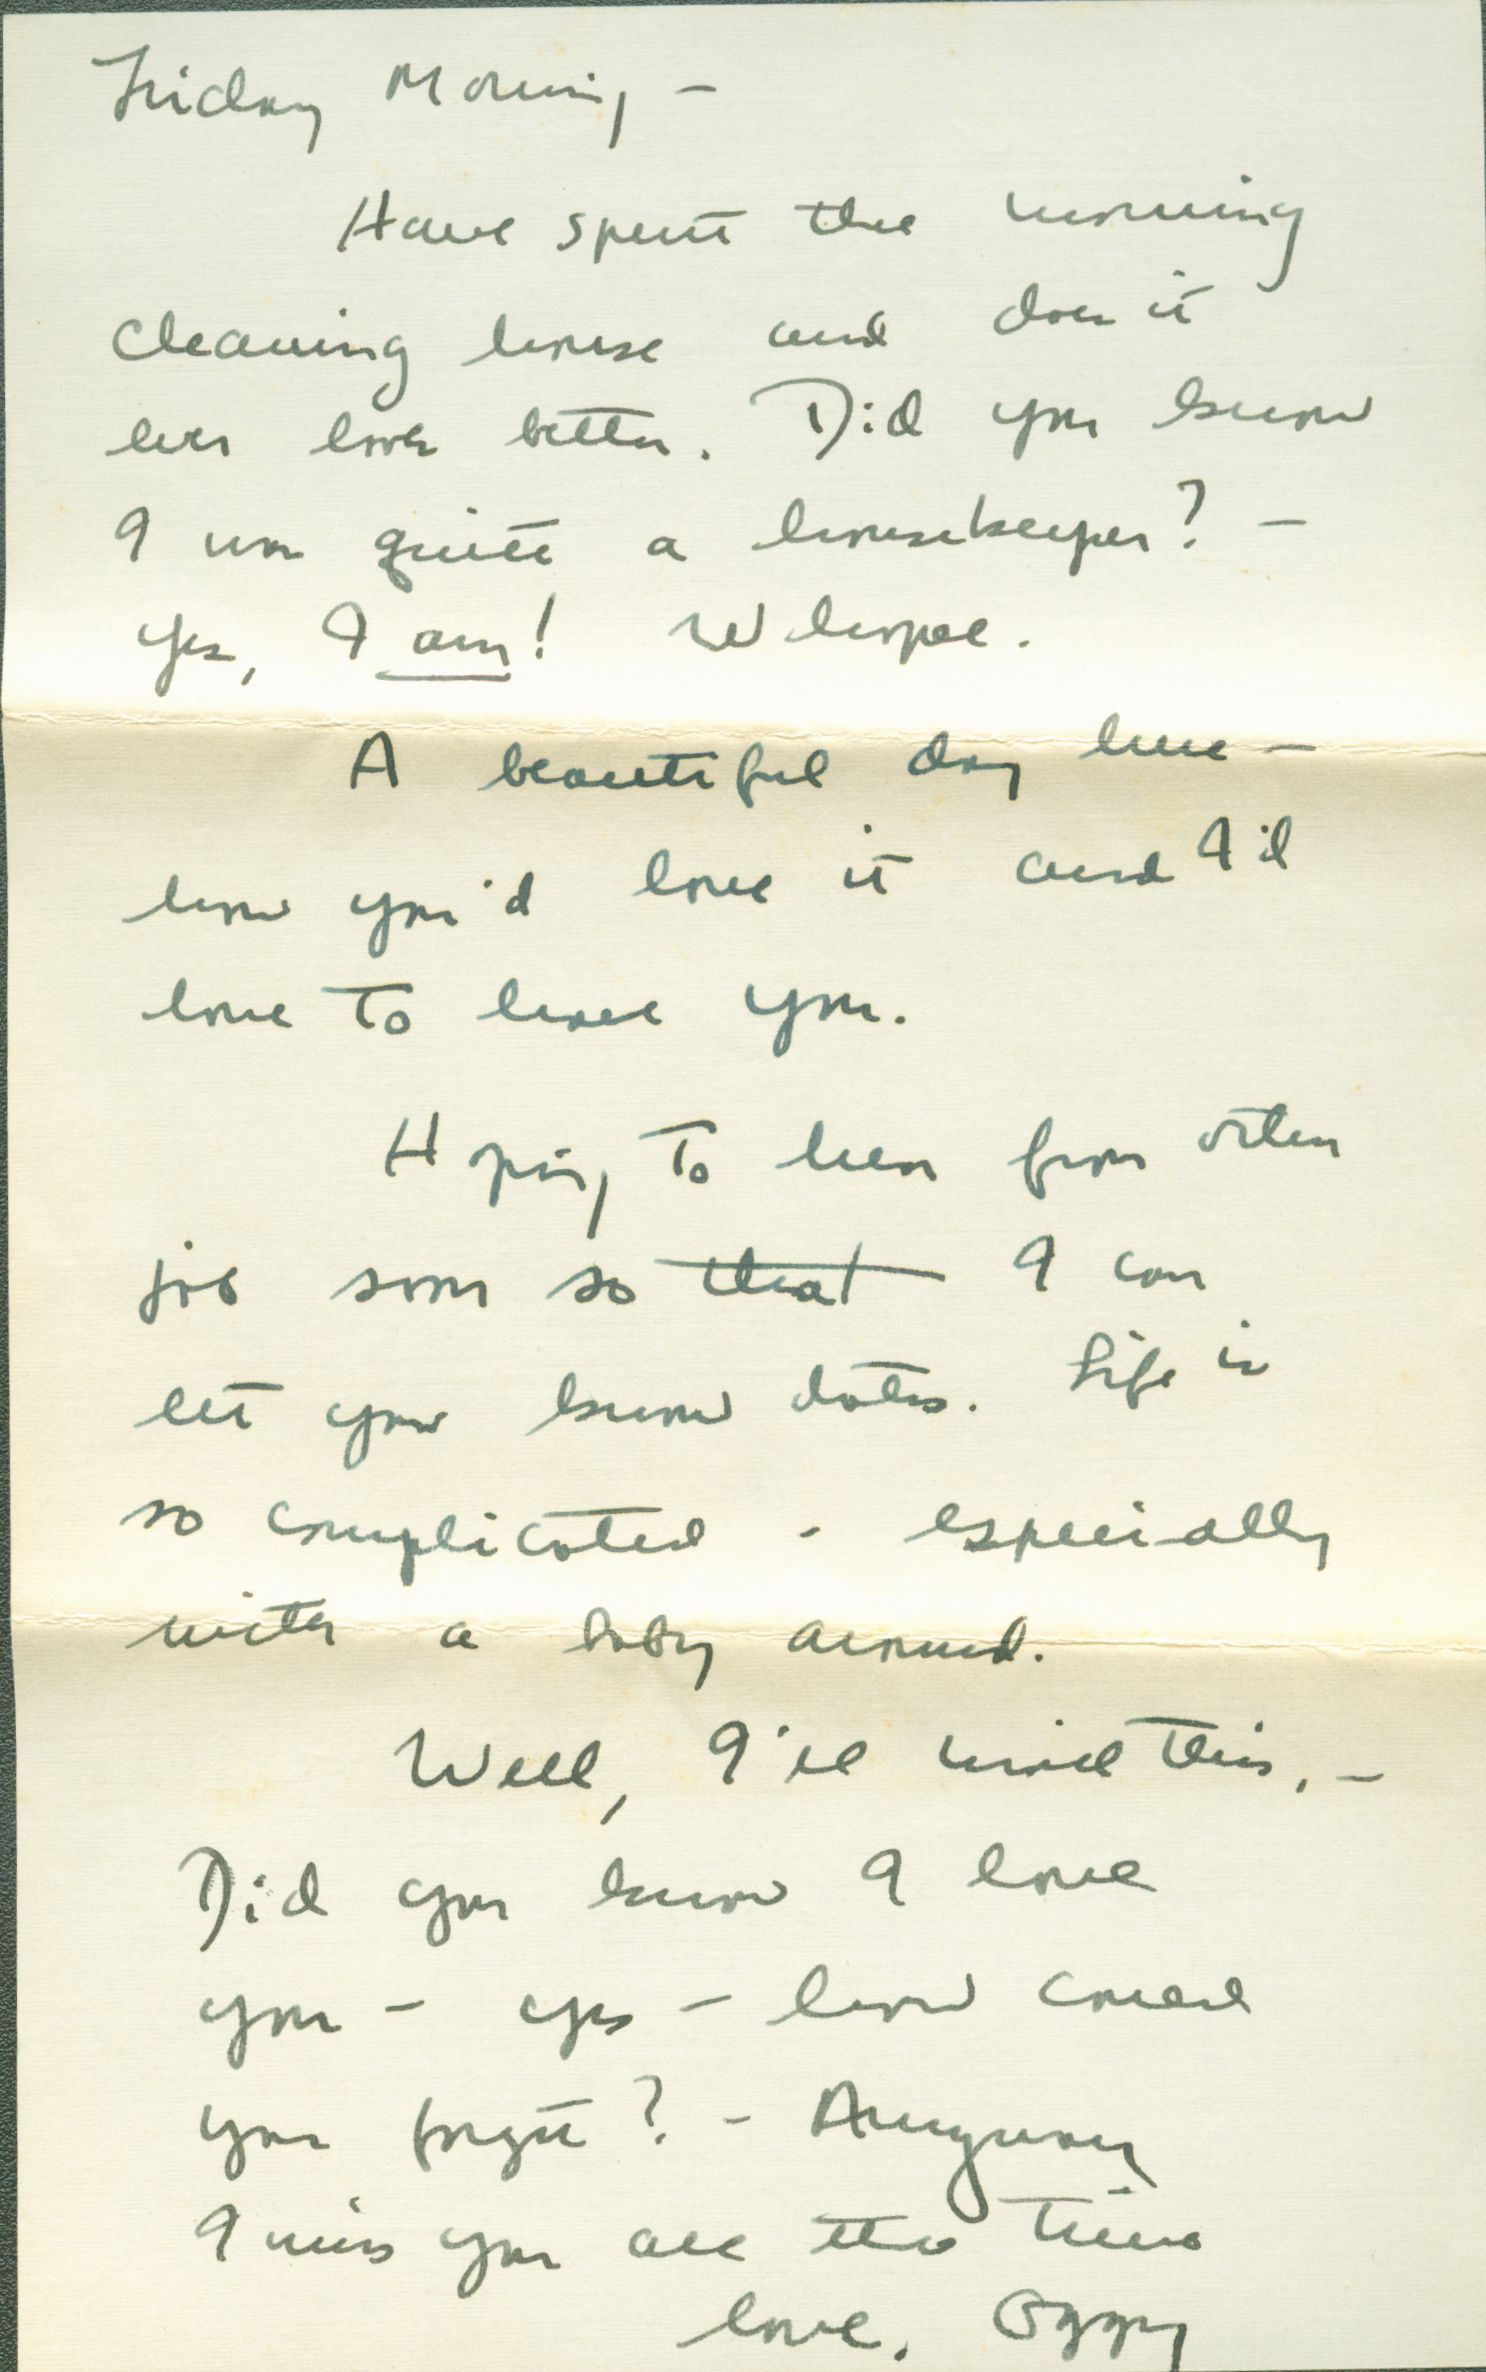 Friday Morning -
Have spent the morning
cleaning house and does it
ever look better. Did you know
I was quite a housekeeper? -
Yes, I am! Whopee.
A beautiful day here -
how you'd love it and I'd
love to have you.
Hoping to hear from other
job soon so that I can
let you know dates. Life is
so complicated - especially
with a baby around.
Well, I'll mail this, -
Did you know I love
you - yes - how could
you forget? - Anyway
I miss you all the time
love, Oggy